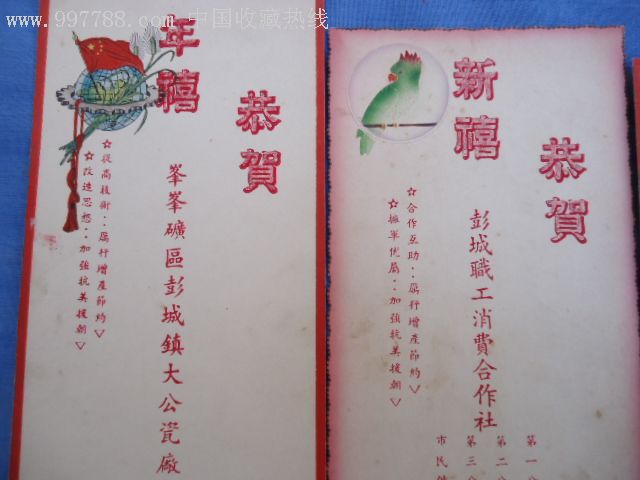 www.997788.com 中国收藏热线
恭賀
年禧
峯峯礦區彭城鎮大公瓷廠
☆提高技術：厲行增產節約▽
☆改造思想：加強抗美援朝▽
恭賀
新禧
彭城職工消費合作社
第一
第二
第三
市民
☆合作互助：厲行增產節約▽
☆擁軍优屬：加強抗美援朝▽